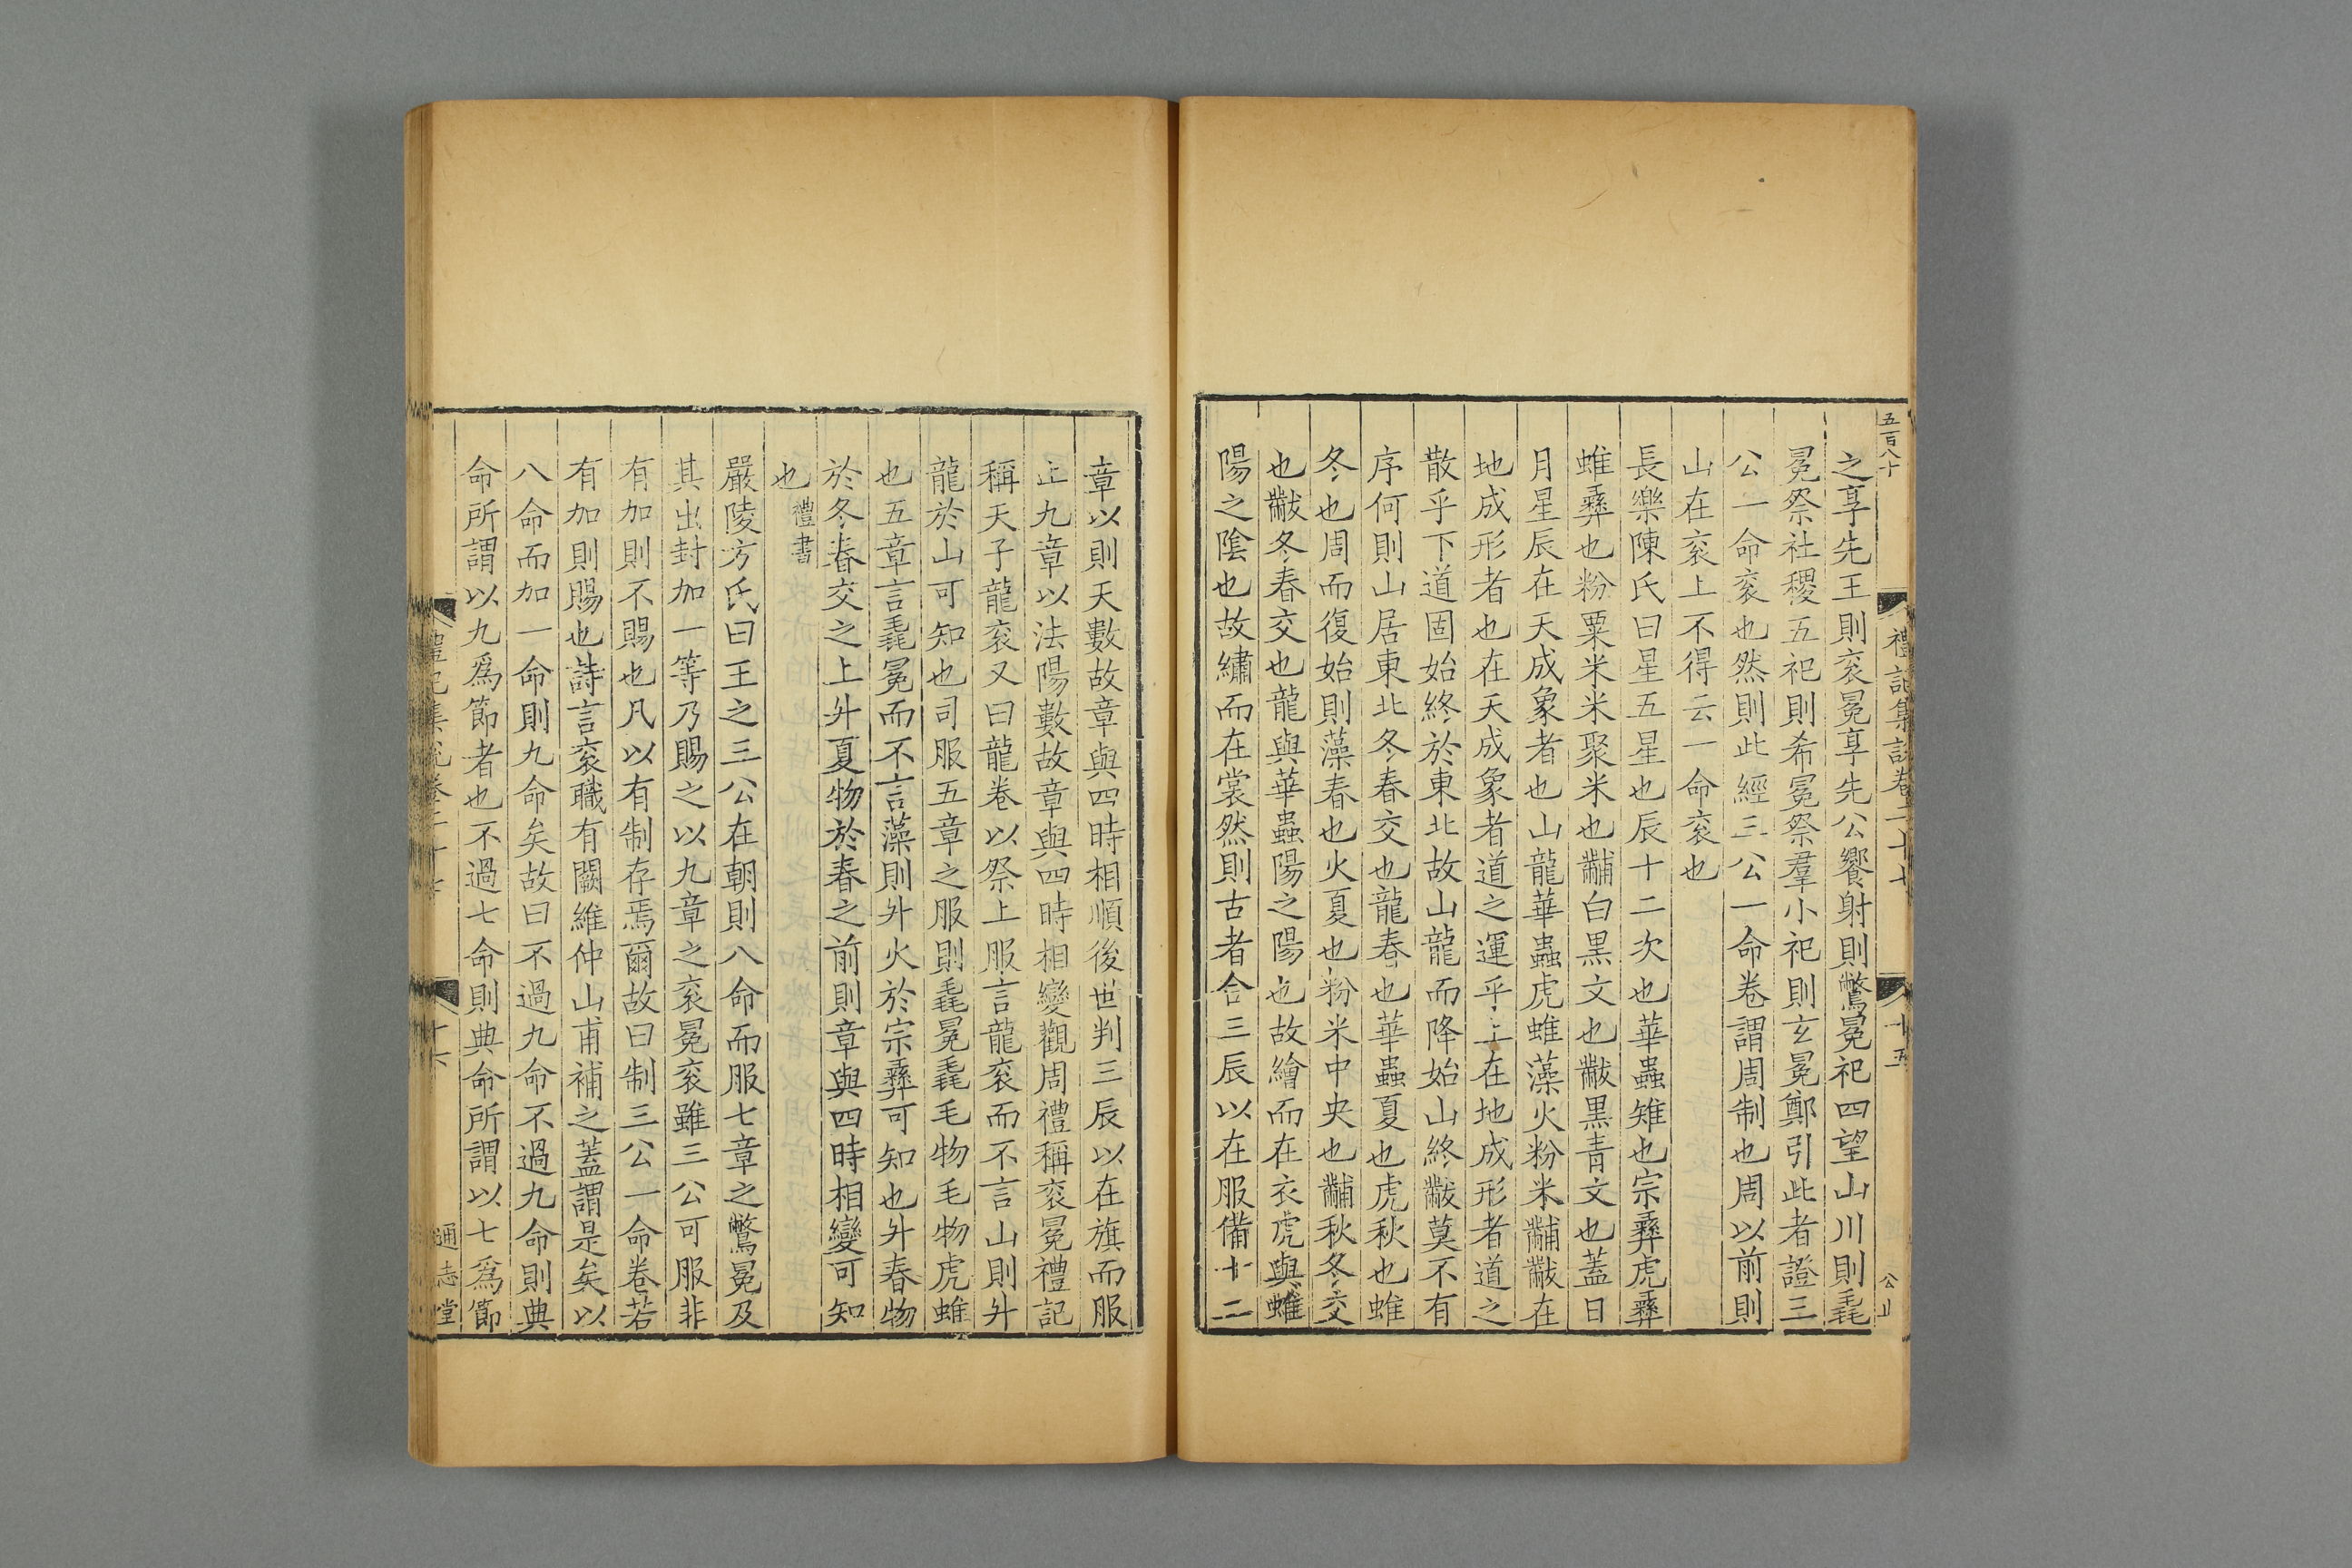 五百八十
禮記集說卷二十七
十五
公
之享先王則袞冕享先公饗射則鷩冕祀四望山川則毳
冕祭社稷五祀則希冕祭羣小祀則玄冕鄭引此者證三
公一命袞也然則此經三公一命卷謂周制也周以前則
山在袞上不得云一命袞也
長樂陳氏曰星五星也辰十二次也華蟲雉也宗彝虎彝
蜼彝也粉粟米米聚米也黼白黒文也黻黒青文也蓋日
月星辰在天成象者也山龍華蟲虎蜼藻火粉米黼黻在
地成形者也在天成象者道之運乎上在地成形者道之
散乎下道固始終於東北故山龍而降始山終黻莫不有
序何則山居東北冬春交也龍春也華蟲夏也虎秋也蜼
冬也周而復始則藻春也火夏也粉米中央也黼秋冬交
也黻冬春交也龍與華蟲陽之陽也故繪而在衣虎與蜼
陽之陰也故繡而在裳然則古者合三辰以在服備十二
章以則天數故章與四時相順後世判三辰以在旗而服
止九章以法陽數故章與四時相變觀周禮稱袞冕禮記
稱天子龍袞又曰龍卷以祭上服言龍袞而不言山則升
龍於山可知也司服五章之服則毳冕毳毛物毛物虎蜼
也五章言毳冕而不言藻則升火於宗彝可知也升春物
於冬春交之上升夏物於春之前則章與四時相變可知
也禮書
嚴陵方氏曰王之三公在朝則八命而服七章之鷩冕及
其出封加一等乃賜之以九章之袞冕袞雖三公可服非
有加則不賜也凡以有制存焉爾故曰制三公一命卷若
有加則賜也詩言袞職有闕維仲山甫補之蓋謂是矣以
八命而加一命則九命矣故曰不過九命不過九命則典
命所謂以九爲節者也不過七命則典命所謂以七爲節
禮記集說卷二十七
十六
通志堂